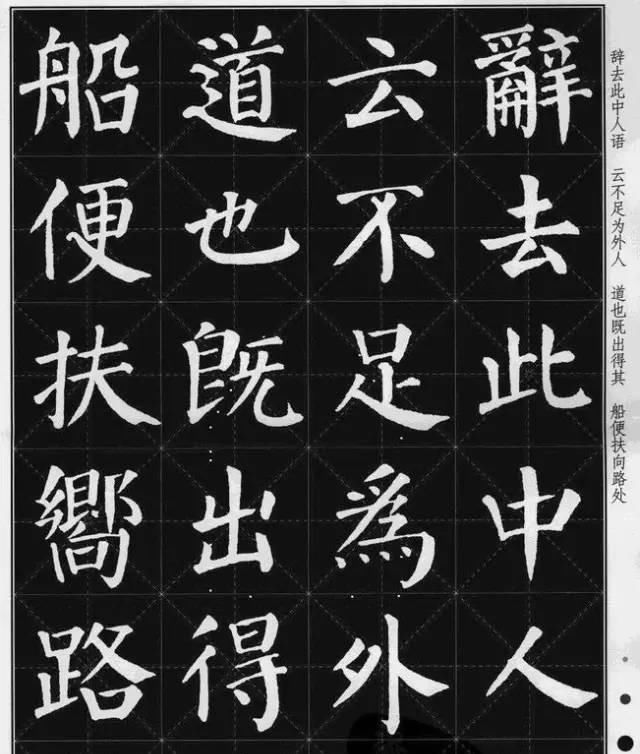 辞去此中人语 云不足为外人 道也既出得其 船便扶向路处
辭去此中人
云不足為外
道也既出得
船便扶嚮路